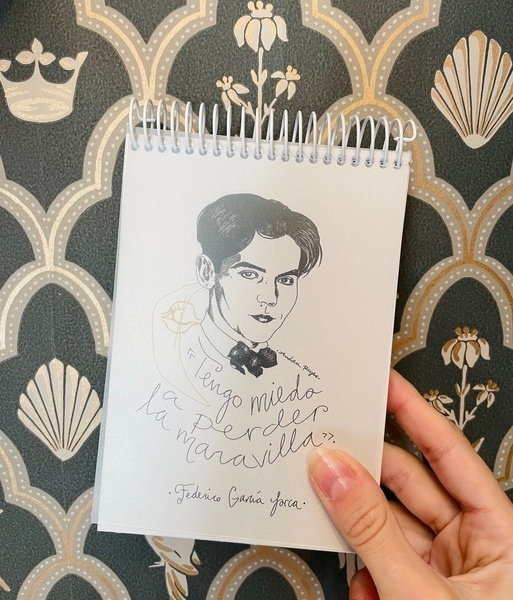 «Tengo miedo
a perder
la maravilla».
·Federico García Lorca·